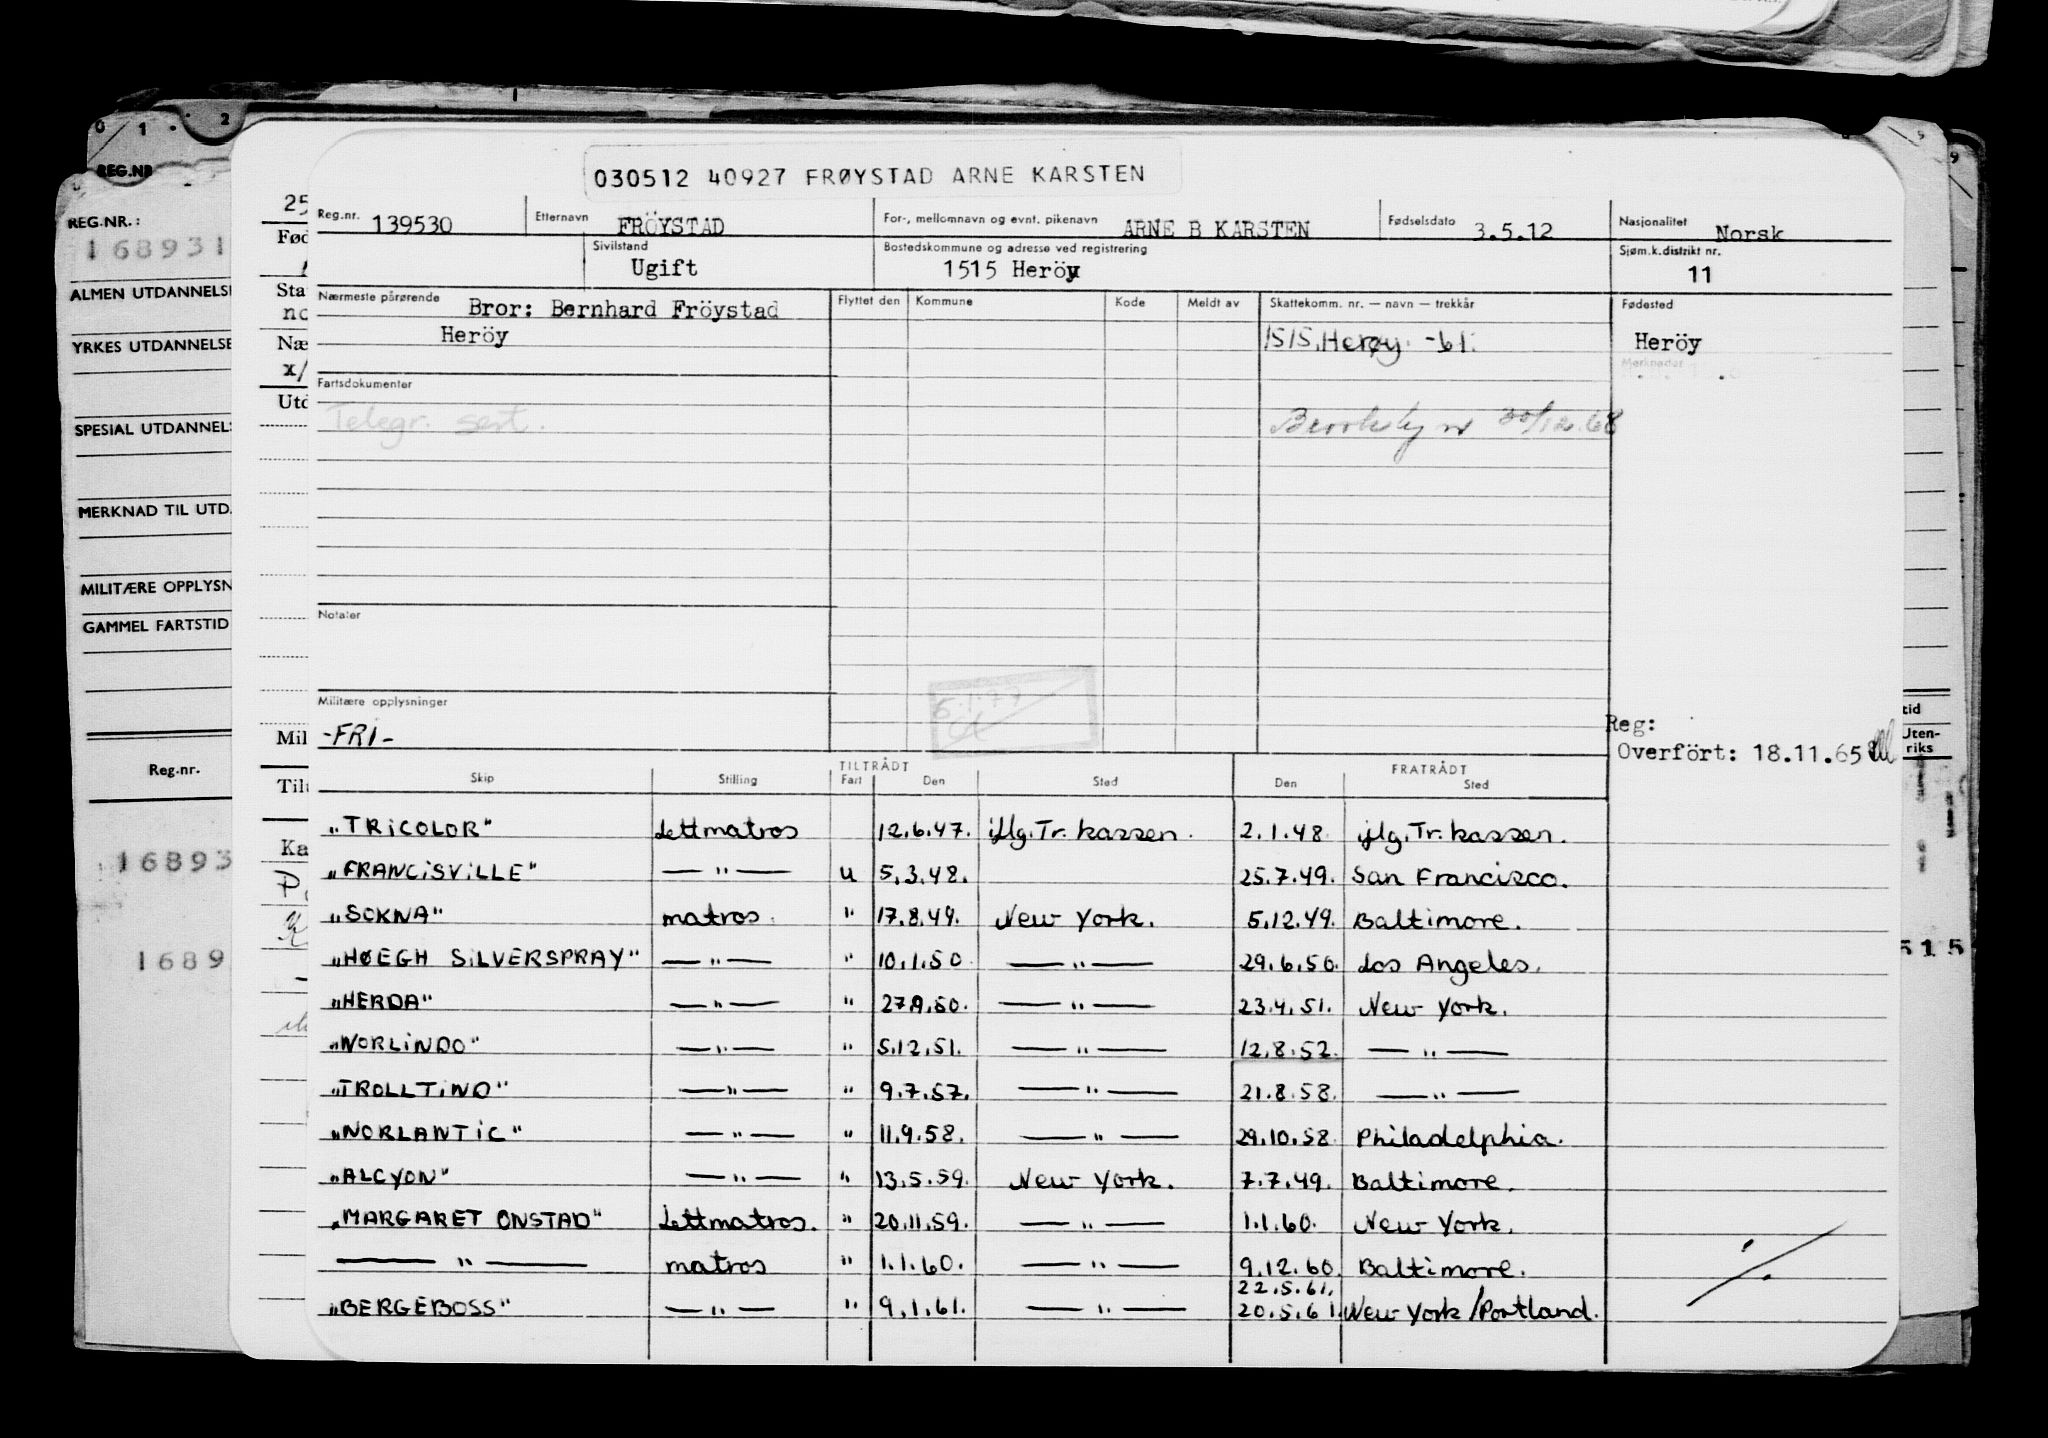 030512 40927 FRØYSTAD ARNE KARSTEN
Reg.nr. 139530 Etternavn FRÖYSTAD For-, mellomnavn og evnt. pikenavn ARNE B KARSTEN Fødselsdato 3.5.12 Nasjonalitet Norsk
Sivilstand Ugift Bostedskommune og adresse ved registrering 1515 Heröy Sjøm.k.distrikt nr. 11
Nærmeste pårørende Bror: Bernhard Fröystad Flyttet den Kommune Kode Meldt av Skattekomm. nr. — navn — trekkår Fødested
Heröy 1515 Herøy. -61. Heröy
Merknader
Fartsdokumenter
Telegr. sert. 30/12.68
Notater
Militære opplysninger
-FRI-
Reg:
Overfört: 18.11.65
TILTRÅDT FRATRÅDT
Skip Stilling Fart Den Sted Den Sted
"TRICOLOR" Lettmatros 12.6.47. iflg. Tr. kassen. 2.1.48. iflg. Tr. kassen.
"FRANCISVILLE" — " — u 5.3.48. 25.7.49. San Francisco.
"SOKNA" matros. " 17.8.49. New York. 5.12.49. Baltimore.
"HØEGH SILVERSPRAY" — " — " 10.1.50. — " — 29.6.50. Los Angeles.
"HERDA" — " — " — " — 23.4.51. New York.
"NORLINDO" — " — " 5.12.51. — " — 12.8.52. — " —
"TROLLTIND" — " — " 9.7.57. — " — 21.8.58. — " —
"NORLANTIC" — " — " 11.9.58. — " — 29.10.58. Philadelphia.
"ALCYON" — " — " 13.5.59. New York. 7.7.49. Baltimore.
"MARGARET ONSTAD" Lettmatros. " 20.11.59. — " — 1.1.60. New York.
— " — matros " 1.1.60. — " — 9.12.60. Baltimore.
22.5.61.
"BERGEBOSS" — " — " 9.1.61. — " — 20.5.61. New York/Portland.
0 1 2
REG.NR
REG.NR.:
168931
ALMEN UTDANNELSE
YRKES UTDANNELSE
MERKNAD TIL UTD.
GAMMEL FARTSTID
Reg.nr.
16893
1689
25
Mil
Ka
9
tid
Uten-
riks
515